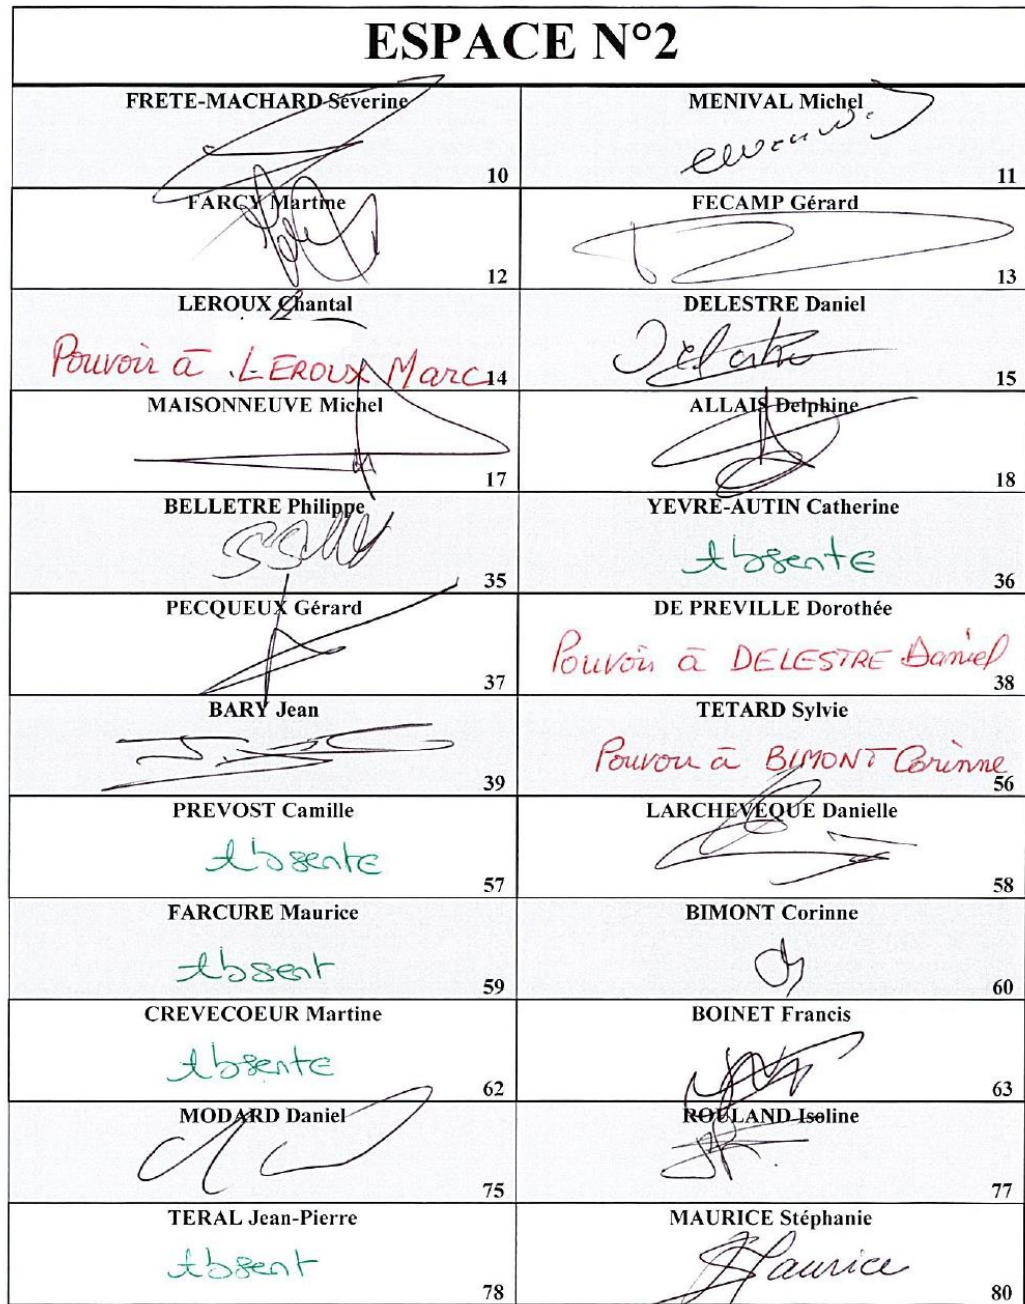 ESPACE N°2
FRETE-MACHARD Séverine
10
MENIVAL Michel
11
FARCY Martine
12
FECAMP Gérard
13
LEROUX Chantal
Pouvoir à LEROUX Marc
14
DELESTRE Daniel
Delestre
15
MAISONNEUVE Michel
17
ALLAIS Delphine
18
BELLETRE Philippe
35
YEVRE-AUTIN Catherine
Absente
36
PECQUEUX Gérard
37
DE PREVILLE Dorothée
Pouvoir à DELESTRE Daniel
38
BARY Jean
39
TETARD Sylvie
Pouvoir à BIMONT Corinne
56
PREVOST Camille
Absente
57
LARCHEVEQUE Danielle
58
FARCURE Maurice
Absent
59
BIMONT Corinne
60
CREVECOEUR Martine
Absente
62
BOINET Francis
63
MODARD Daniel
75
ROULAND Isoline
77
TERAL Jean-Pierre
Absent
78
MAURICE Stéphanie
SMaurice
80